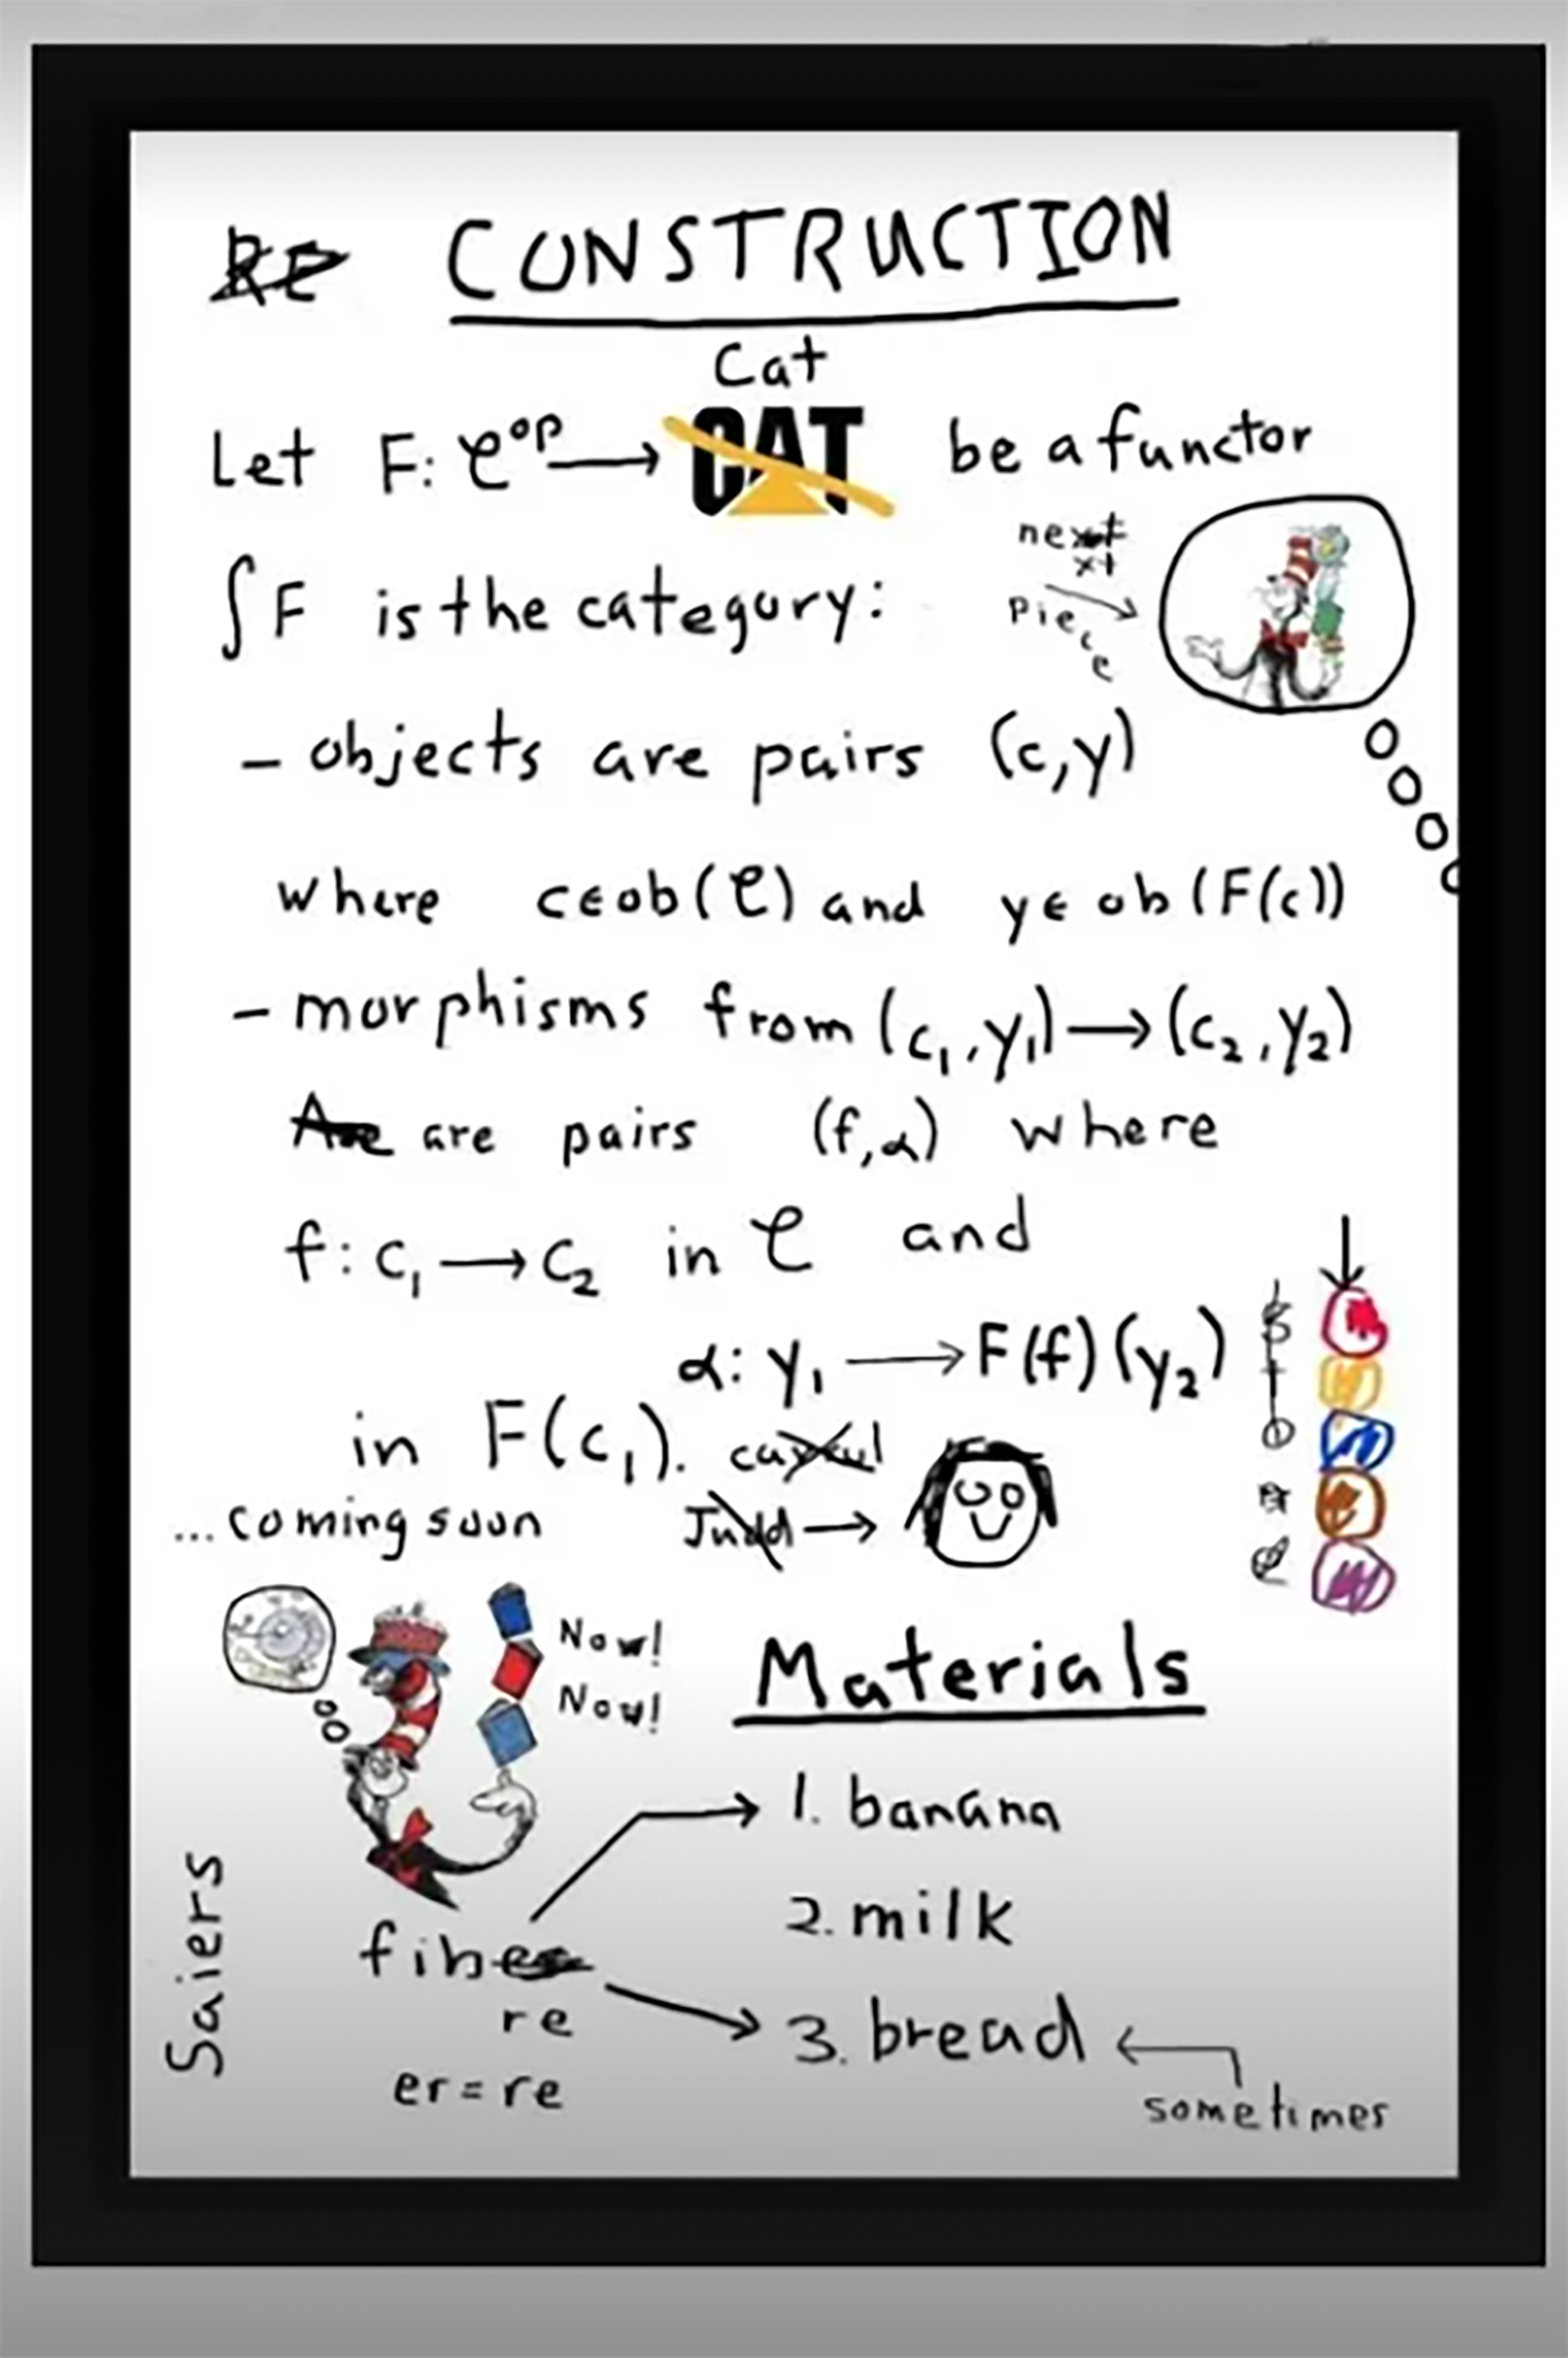 CONSTRUCTION
Cat
Let F: 𝒞^op → CAT be a functor
∫F is the category:
next
xt
piece
- objects are pairs (c,y)
where c∈ob(𝒞) and y∈ob(F(c))
- morphisms from (c₁,y₁)→(c₂,y₂)
Are are pairs (f,α) where
f: c₁→c₂ in 𝒞 and
α: y₁→F(f)(y₂)
in F(c₁).
Judd →
...coming soon
Now!
Now!
Materials
1. banana
2. milk
3. bread
sometimes
fiber
re
er=re
Saiers